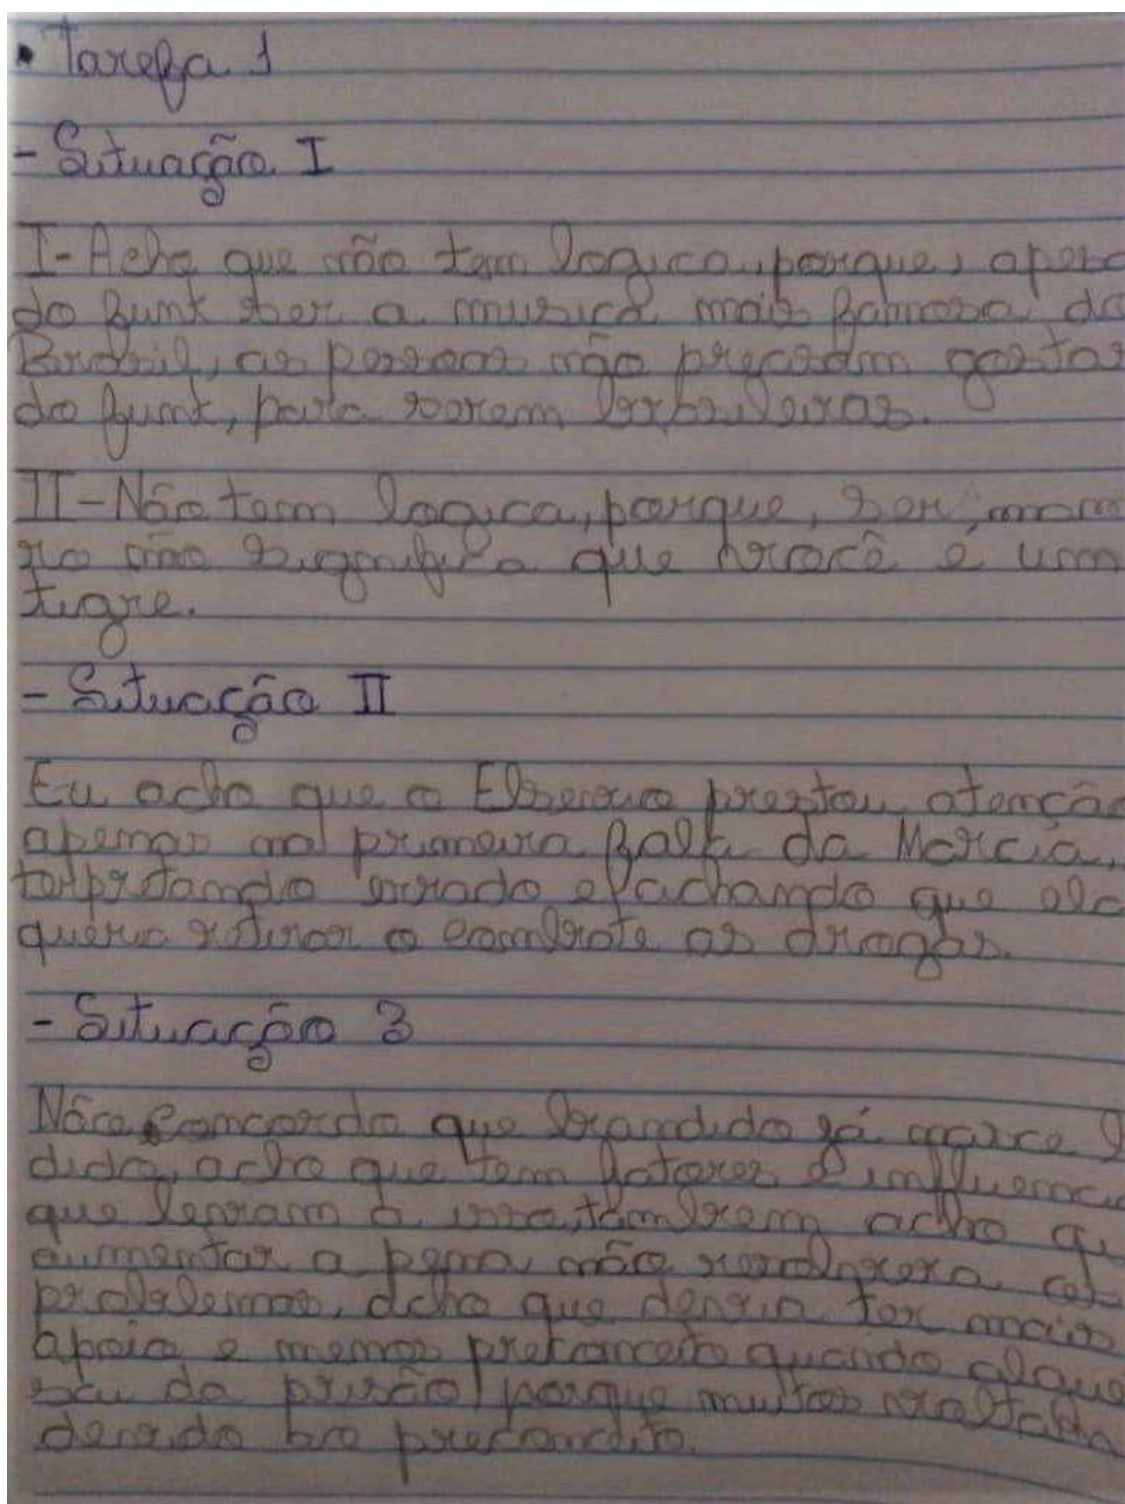 • Tarefa 1
- Situação I
I - Acho que não tem logica, porque, apesa
do funk ser a musica mais famosa do
Brasil, as pessoas não precisam gostar
do funk, para serem brasileiras.
II - Não tem logica, porque, ser mam
não significa que você é um
tigre.
- Situação II
Eu acho que o Elsevio prestou atenção
apenas na primeira fala da Marcia,
errado e achando que ela
queria retirar o combate as drogas.
- Situação 3
Não concordo que bandido já nasce
dido, acho que tem fatores e influencia
que levam a isso, tambem acho qu
aumentar a pena não resolvera
problemas, acho que devia ter mais
apoio e menos preconceito quando algue
sai da prisão, porque muitos
devido ao preconceito.